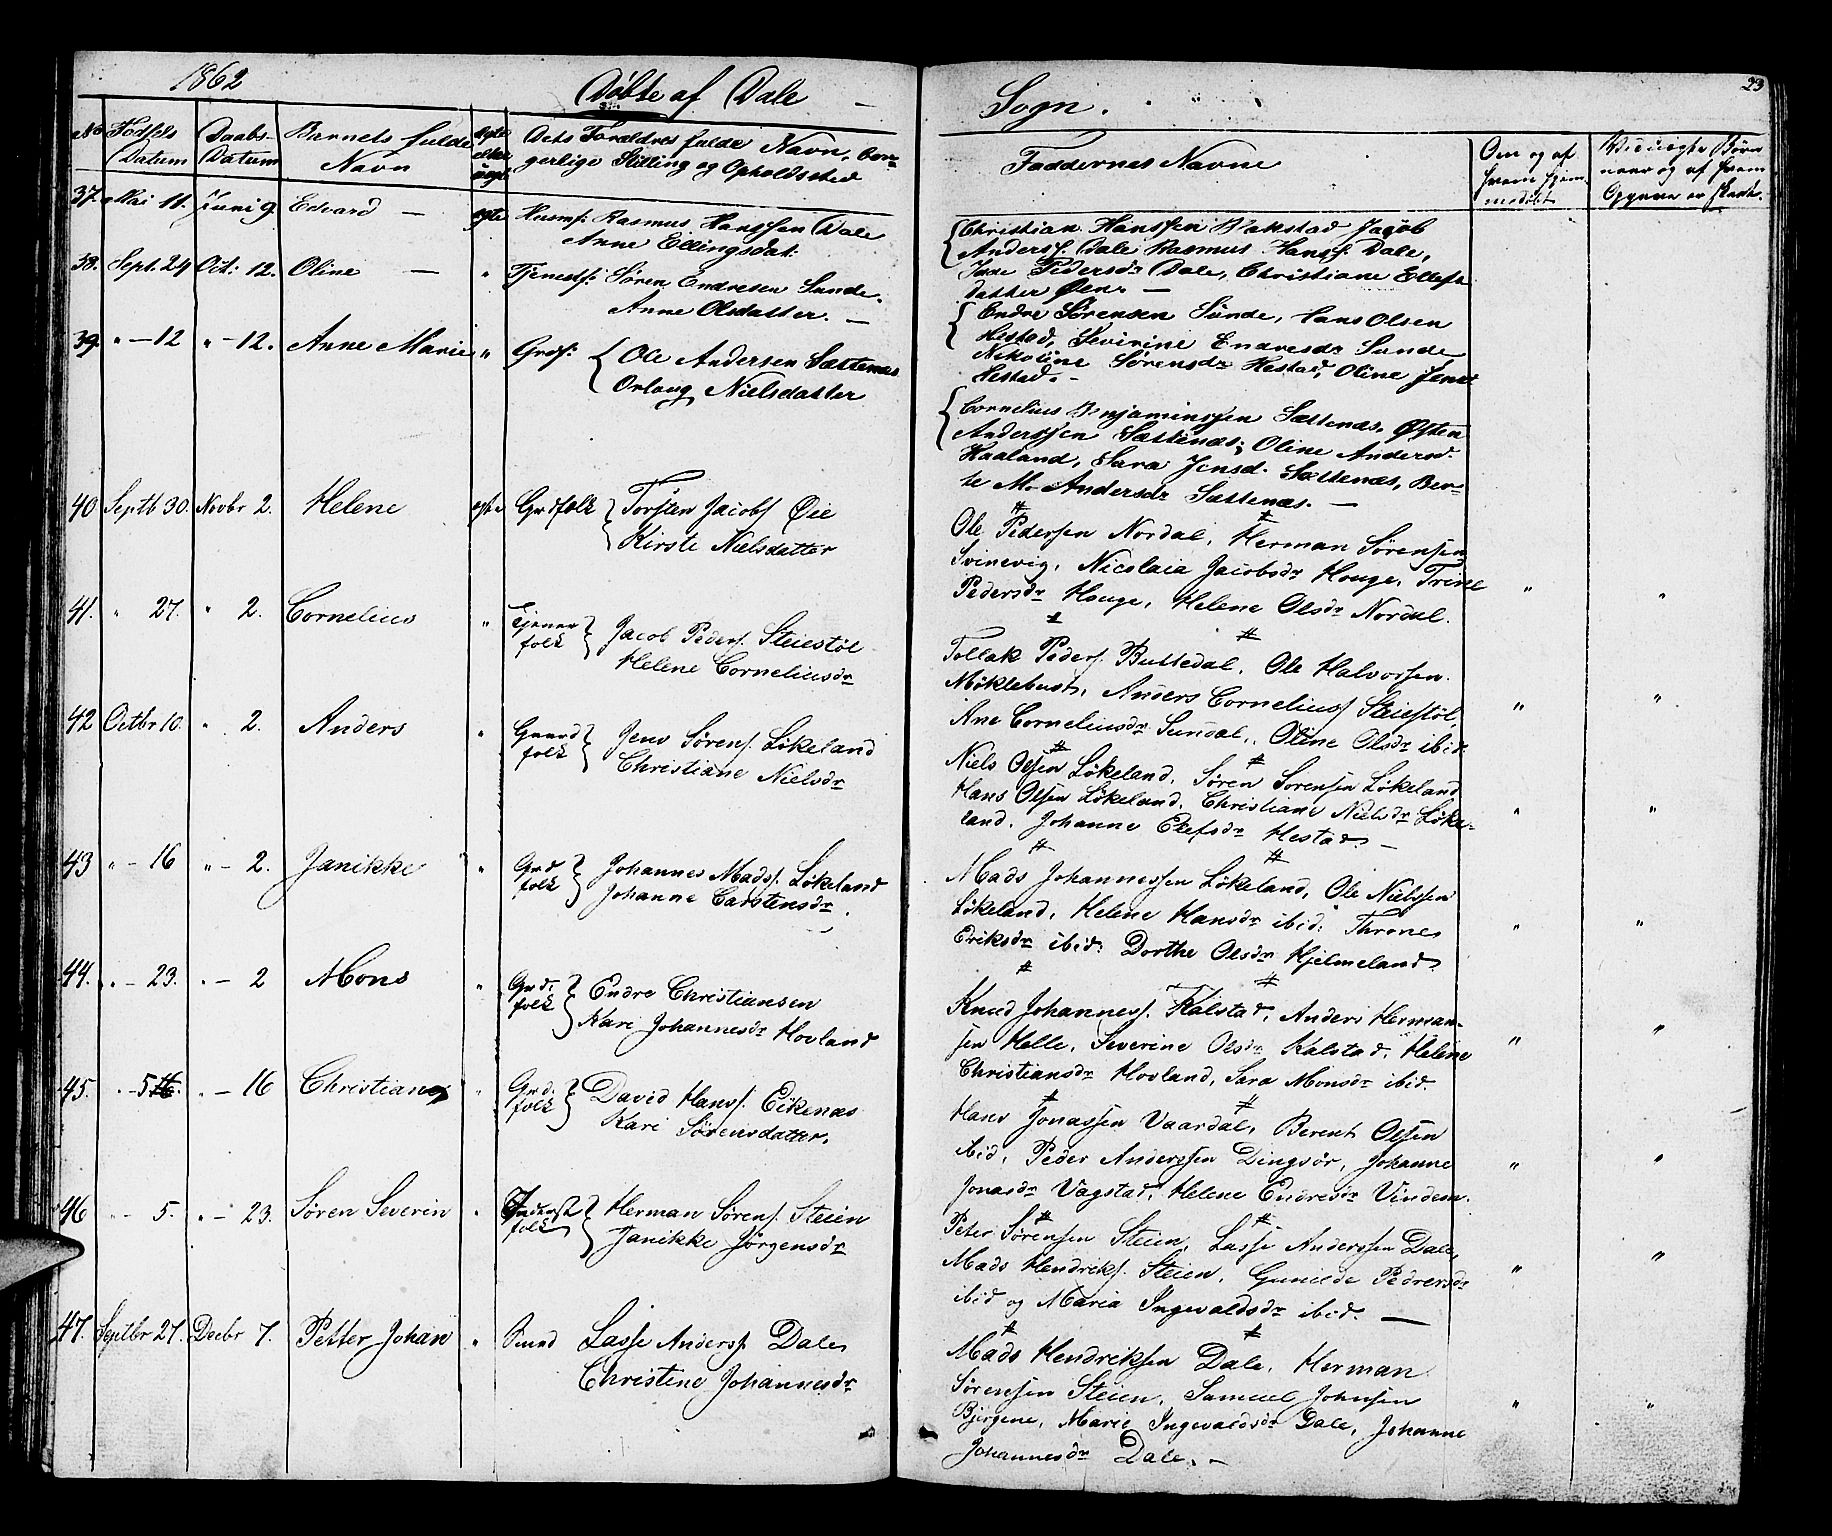 1862 Døbte af Dale — Sogn. 23
No Fødsels Datum
Daabs-Datum
Barnets fulde Navn
ægte eller uægte
Dets Forældres fulde Navn, borgerlige Stilling og Opholdssted
Faddernes Navne
Om og af hvem hjemmedøbt
37. Mai 11. Juni 9. Edvard — ægte Husmf: Rasmus Hanssen Dale
Anne Ellingsdat:
Christian Hanssen Bakstad Jacob
Anderss. Dale Rasmus Hanss. Dale,
Pedersdr Dale, Christiane Ellefs
datter Øen. —
38. Sept. 24 Oct: 12. Oline — " Tjenestf: Søren Endresen Sunde.
Anne Olsdatter. —
Endre Sørensen Sunde, Hans Olsen
Hestad, Severine Endresdr Sunde
Nikoline Sørensdr Hestad, Oline Jens
Hestad. -
39. " — 12 " — 12. Anne Marie " Grdf: Ole Andersen Sættenæs
Orloug Nielsdatter
Cornelius Benjaminssen Sættenæs, Østen
Anderssen Sættenæs, Oline Andersd.
Haaland, Sara Jensd. Sættenæs, Ber-
te M. Andersdr Sættenæs. —
40 Septb 30. Novbr 2. Helene ægte Grdfolk Torsten Jacobs. Øie
Kirste Nielsdatter
Ole Pedersen Nordal, Herman Sørensen
Svinevig, Nicolaia Jacobsdr Houge, Trine
Pedersdr Houge, Helene Olsdr Nordal.
41. " 27. " 2. Cornelius " Tjener folk Jacob Peders. Steiestøl
Helene Corneliusdr
Tollak Peders. Buttedal, Ole Halvorsen
Møklebust, Anders Corneliuss. Steiestøl,
Ane Corneliusdr Sundal, Oline Olsdr ibid.
42 Octbr 10. " 2. Anders " Gaard folk Jens Sørens. Løkeland
Christiane Nielsdr
Niels Olsen Løkeland, Søren Sørensen Løkeland
Hans Olsen Løkeland, Christiane Nielsdr Løke-
land, Johanne Elefsdr Hestad. —
43 " - 16 " - 2. Janikke " Grd folk Johannes Madss. Løkeland
Johanne Carstensdr.
Mads Johannessen Løkeland, Ole Nielssen
Løkeland, Helene Hansdr ibid: Throne
Eriksdr ibid: Dorthe Olsdr Hjelmeland.
44. " - 23. " - 2 Mons " Grd: folk Endre Christiansen
Kari Johannesdr Hovland
Knud Johanness. Kalstad, Anders Herman-
sen Helle, Severine Olsdr Kalstad, Helene
Christiansdr Hovland, Sara Monsdr ibid.
45. " 5 " - 16 Christiane " Grd: folk David Hanss. Eikenæs
Kari Sørensdatter.
Hans Jonassen Vaardal, Berent Olsen
ibid, Peder Anderssen Dingsør, Johanne
Jonasdr Vagstad, Helene Endresdr Vindem.
46 " - 5. " - 23. Søren Severin " folk Herman Sørens. Steien
Janikke Jørgensdr
Peter Sørensen Steien, Lasse Anderssen Dale,
Mads Hendriks. Steien, Gunilde Pedersdr
ibid og Maria Ingevaldsdr ibid. —
47. Septbr 27. Decbr 7. Petter Johan " Lasse Anderss. Dale
Christine Johannesdr
Mads Hendriksen Dale, Herman
Sørensen Steien, Samuel Johnsen
Bjergene, Marie Ingevaldsdr Dale, Johanne
Johannesdr Dale. —